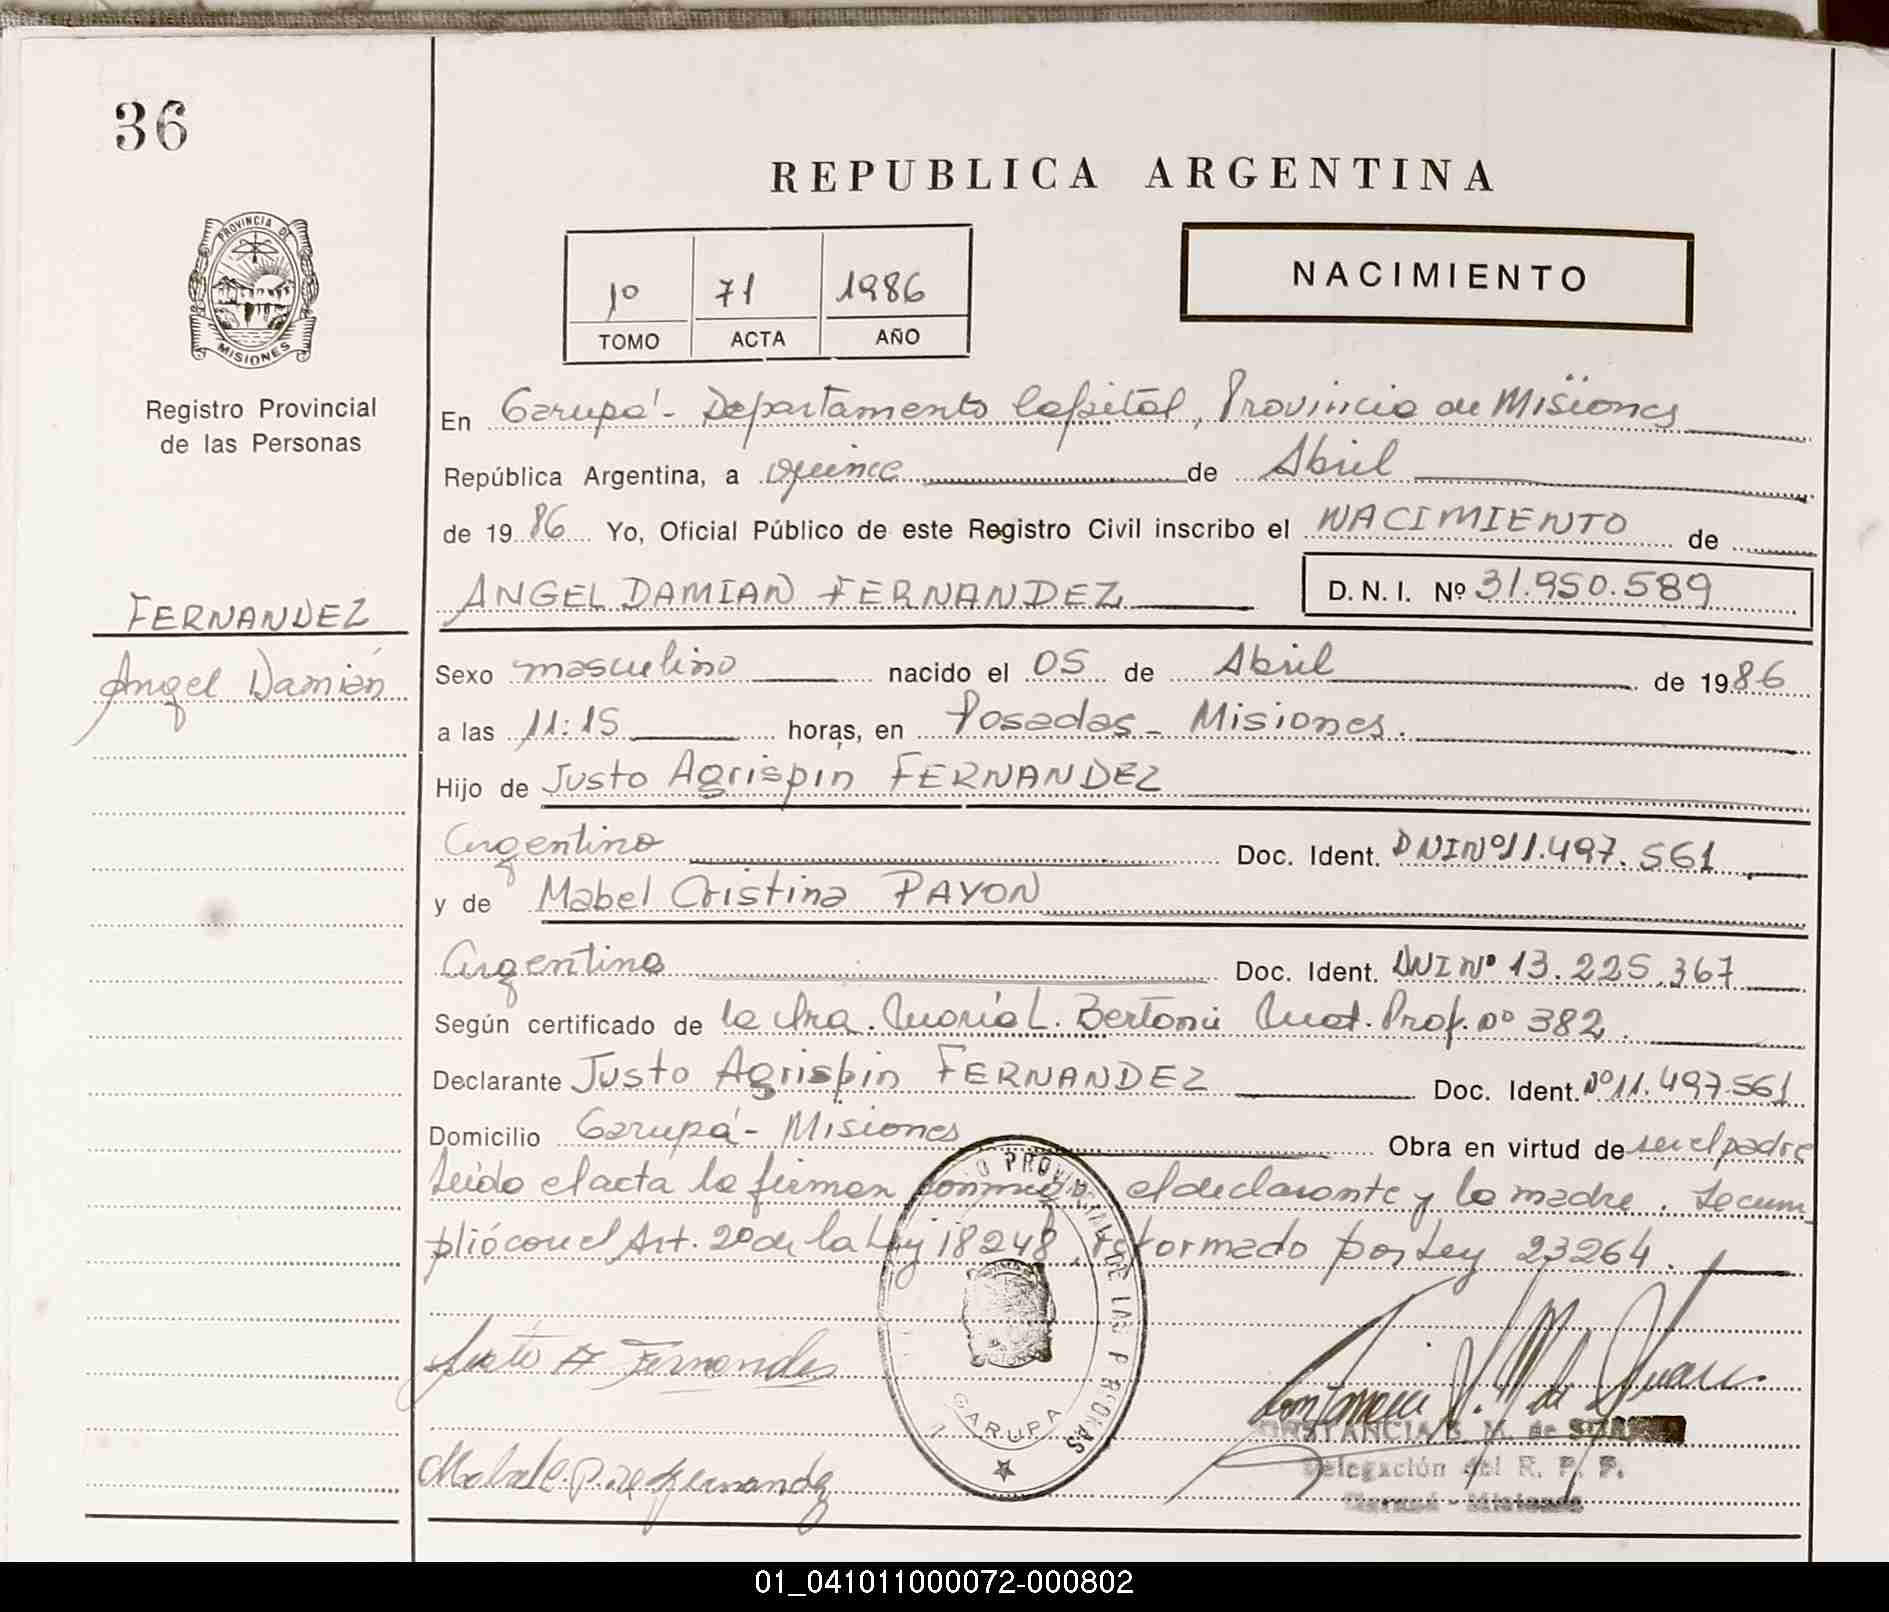 36
REPUBLICA ARGENTINA
PROVINCIA DE
MISIONES
Registro Provincial
de las Personas
1º 71 1986
TOMO ACTA AÑO
NACIMIENTO
En Garupá - Departamento Capital, Provincia de Misiones
República Argentina, a quince de Abril
de 1986 Yo, Oficial Público de este Registro Civil inscribo el NACIMIENTO de
ANGEL DAMIAN FERNANDEZ D.N.I. Nº 31.950.589
FERNANDEZ
Angel Damián
Sexo masculino nacido el 05 de Abril de 1986
a las 11:15 horas, en Posadas - Misiones.
Hijo de Justo Agrispin FERNANDEZ
Argentino Doc. Ident. DNI Nº 11.497.561
y de Mabel Cristina PAYON
Argentina Doc. Ident. DNI Nº 13.225.367
Según certificado de la Dra. María L. Bertoni Mat. Prof. nº 382.
Declarante Justo Agrispin FERNANDEZ Doc. Ident. Nº 11.497.561
Domicilio Garupá - Misiones Obra en virtud de ser el padre
Leído el acta la firman conmigo el declarante y la madre. Se cum-
plió con el Art. 2º de la Ley 18248, reformado por Ley 23264.
PROVINCIAL DE LAS PERSONAS
GARUPA
Justo A Fernandez
Mabel C. P. de Fernandez
CONSTANCIA S. M. de
Delegación del R. P. P.
Garupá - Misiones
01_041011000072-000802